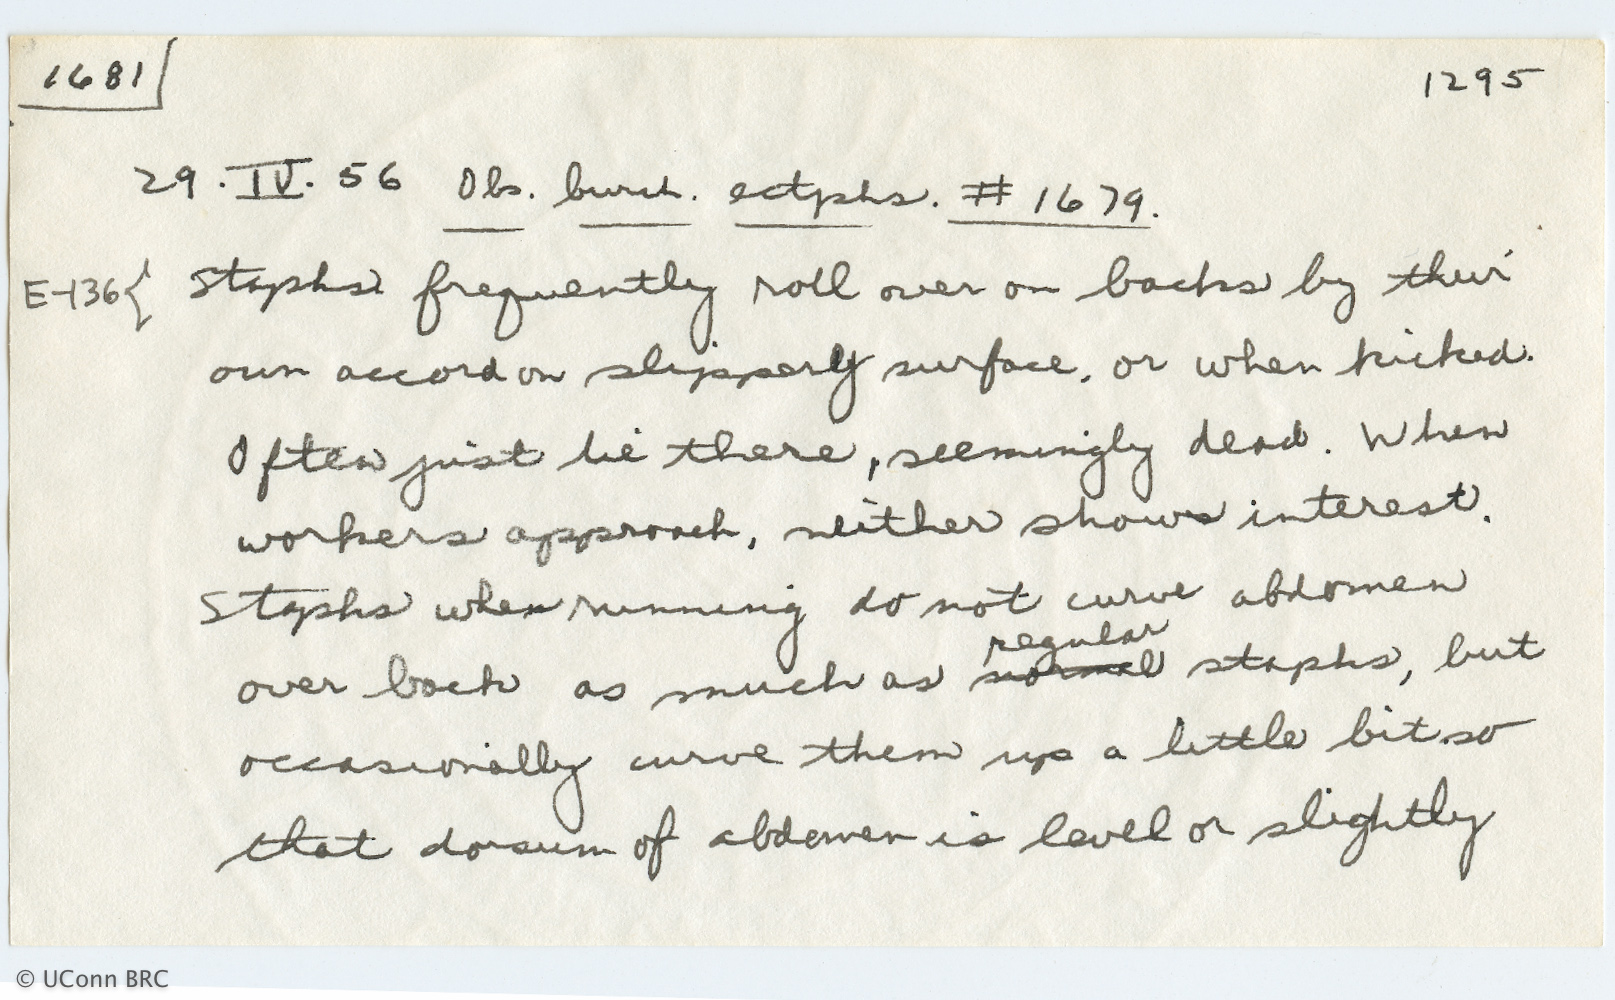 1681
1295
29.IV.56 Obs. burch. ectphs. #1679.
E-136{ Staphs frequently roll over on backs by their
own accord on slipperly surface, or when kicked.
Often just lie there, seemingly dead. When
workers approach, neither shows interest.
Staphs when running do not curve abdomen
regular
over back as much as normal staphs, but
occasionally curve them up a little bit so
that dorsum of abdomen is level or slightly
© UConn BRC